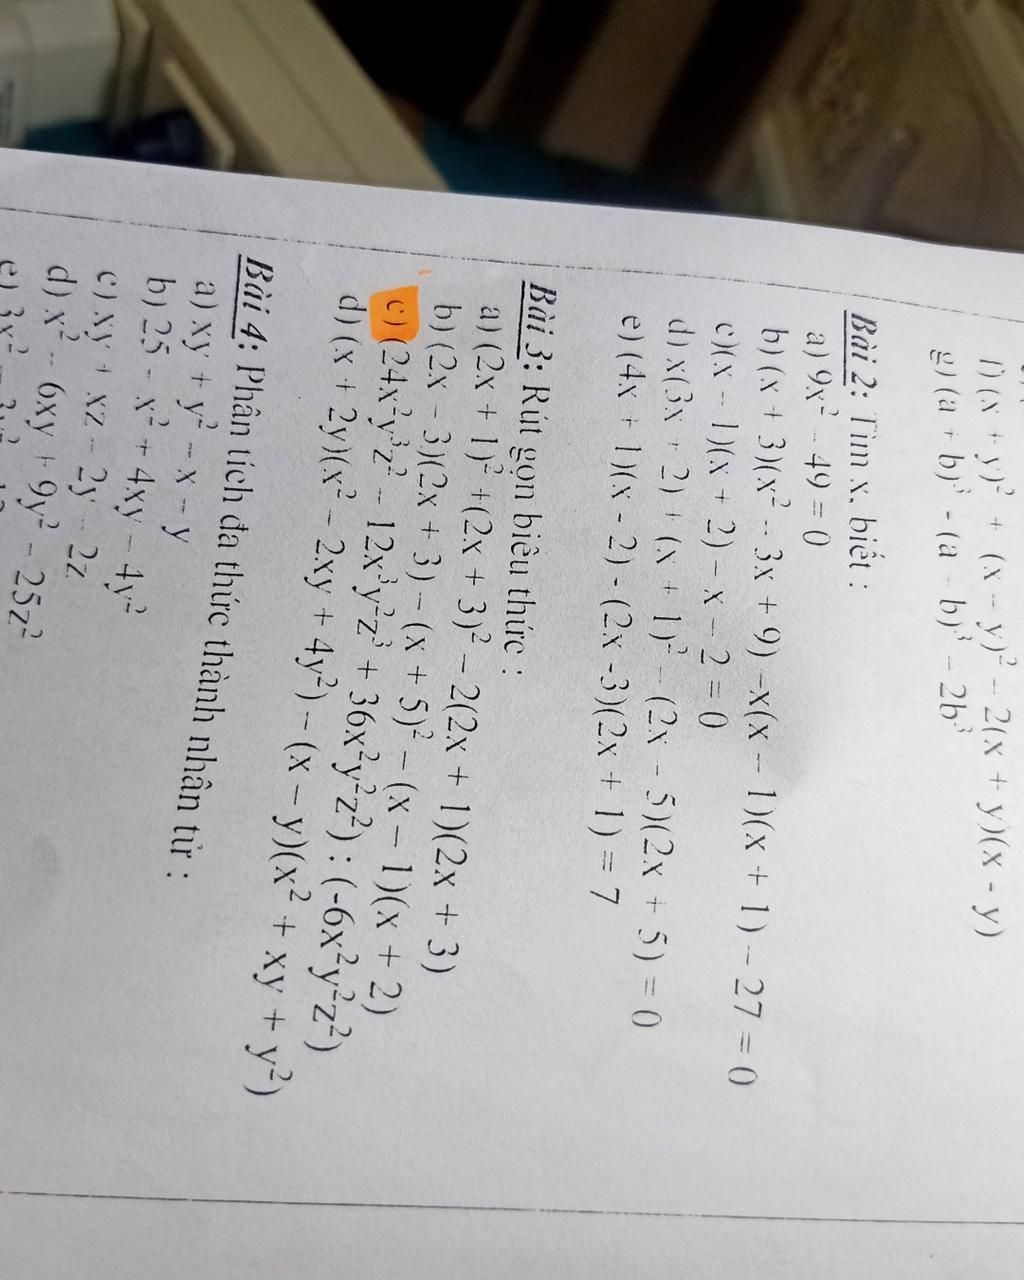 f) (x + y)² + (x – y)² – 2(x + y)(x - y)
g) (a + b)³ - (a – b)³ – 2b³
Bài 2: Tìm x, biết :
a) 9x² – 49 = 0
b) (x + 3)(x² – 3x + 9) –x(x – 1)(x + 1) – 27 = 0
c)(x – 1)(x + 2) – x – 2 = 0
d) x(3x + 2) + (x + 1)² – (2x – 5)(2x + 5) = 0
e) (4x + 1)(x - 2) - (2x -3)(2x + 1) = 7
Bài 3: Rút gọn biểu thức :
a) (2x + 1)² +(2x + 3)² – 2(2x + 1)(2x + 3)
b) (2x – 3)(2x + 3) – (x + 5)² – (x – 1)(x + 2)
c) (24x²y³z² – 12x³y²z³ + 36x²y²z²) : (-6x²y²z²)
d) (x + 2y)(x² – 2xy + 4y²) – (x – y)(x² + xy + y²)
Bài 4: Phân tích đa thức thành nhân tử :
a) xy + y² – x – y
b) 25 – x² + 4xy – 4y²
c) xy + xz – 2y – 2z
d) x² – 6xy + 9y² – 25z²
e) 3x²